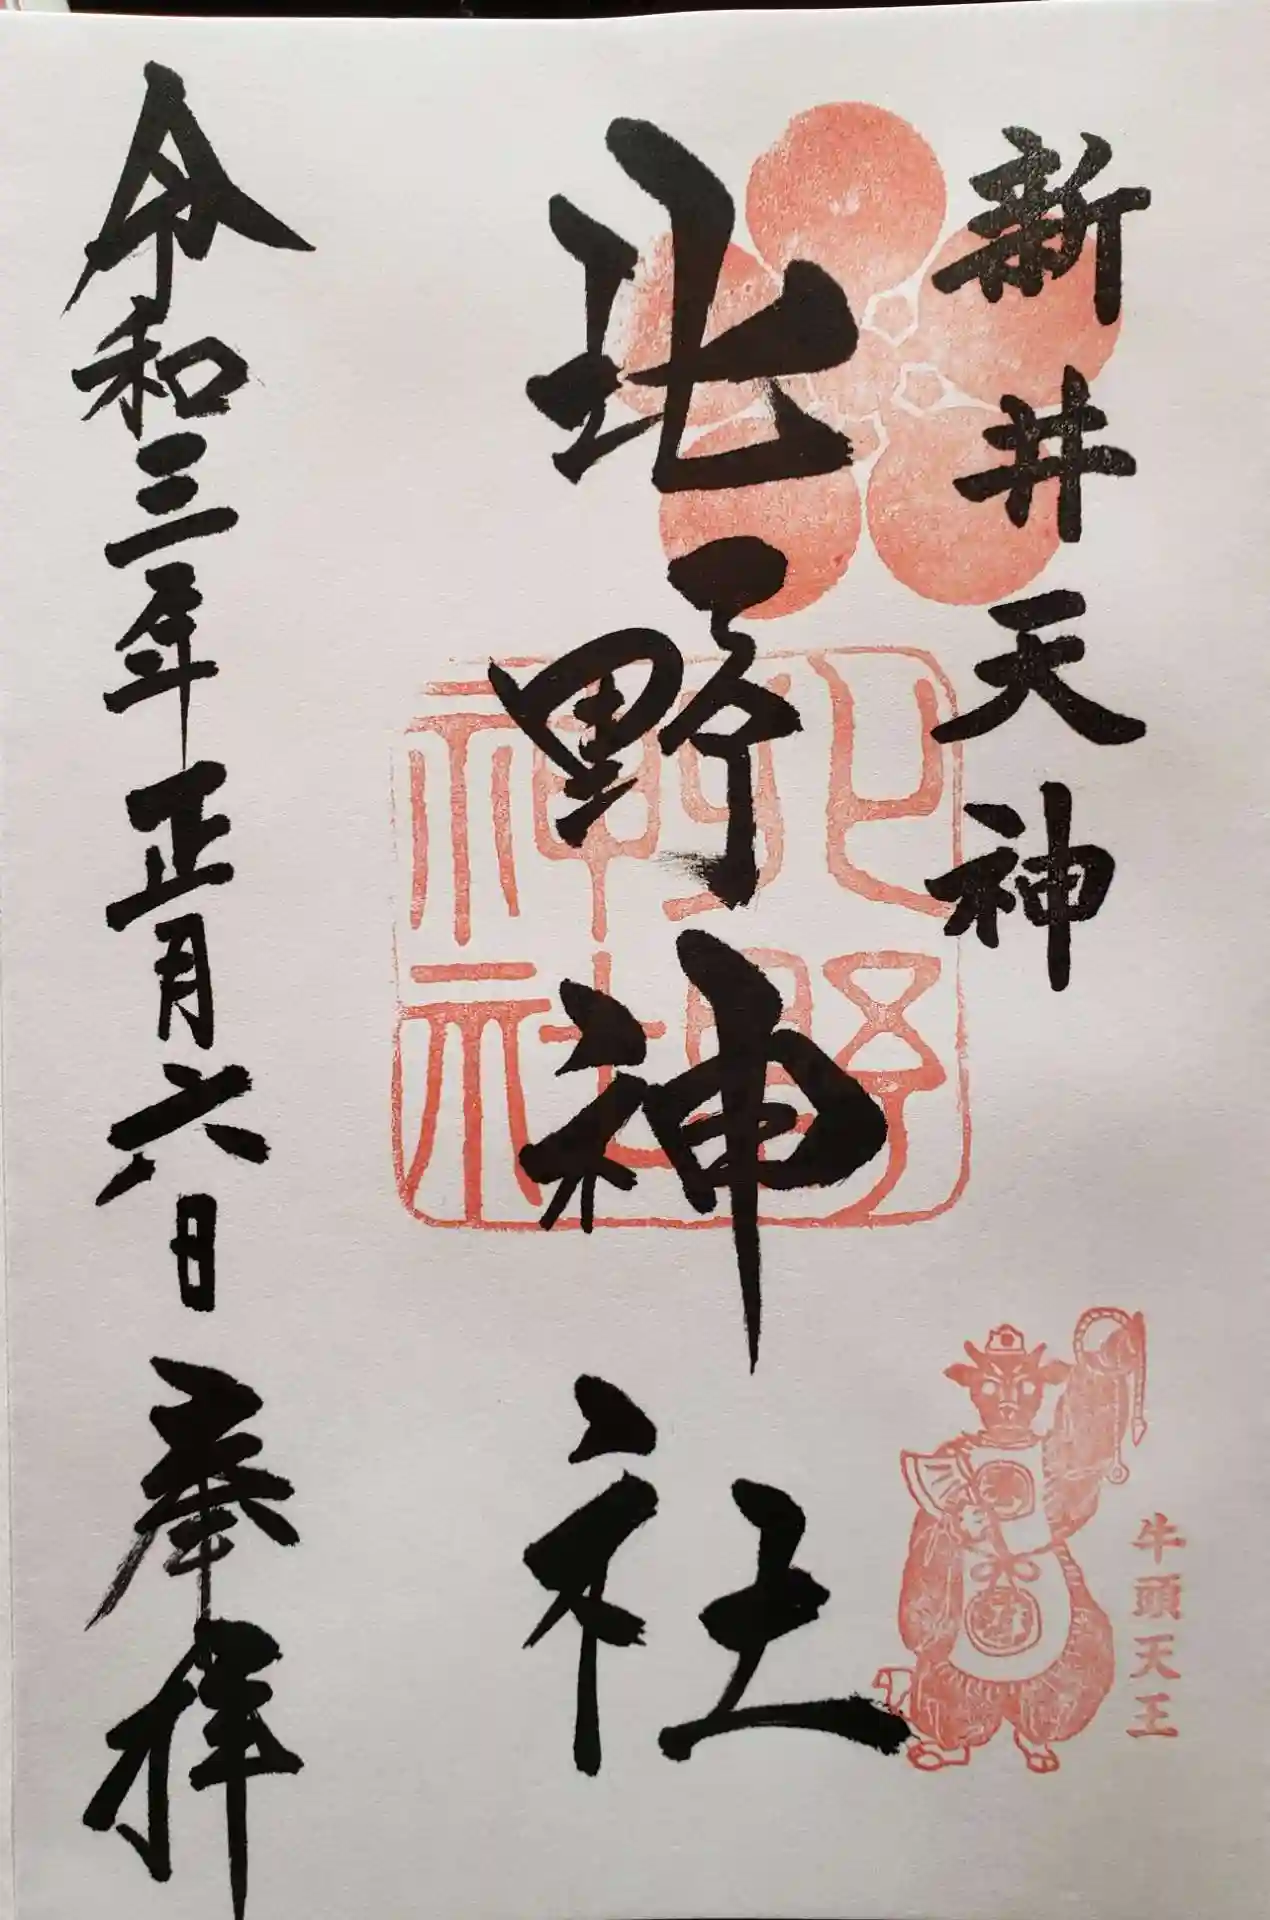 新井天神
牛頭天王
北野神社
北野神社
令和三年正月六日奉拝